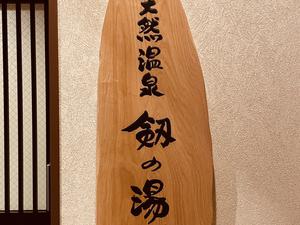 天然温泉 剱の湯